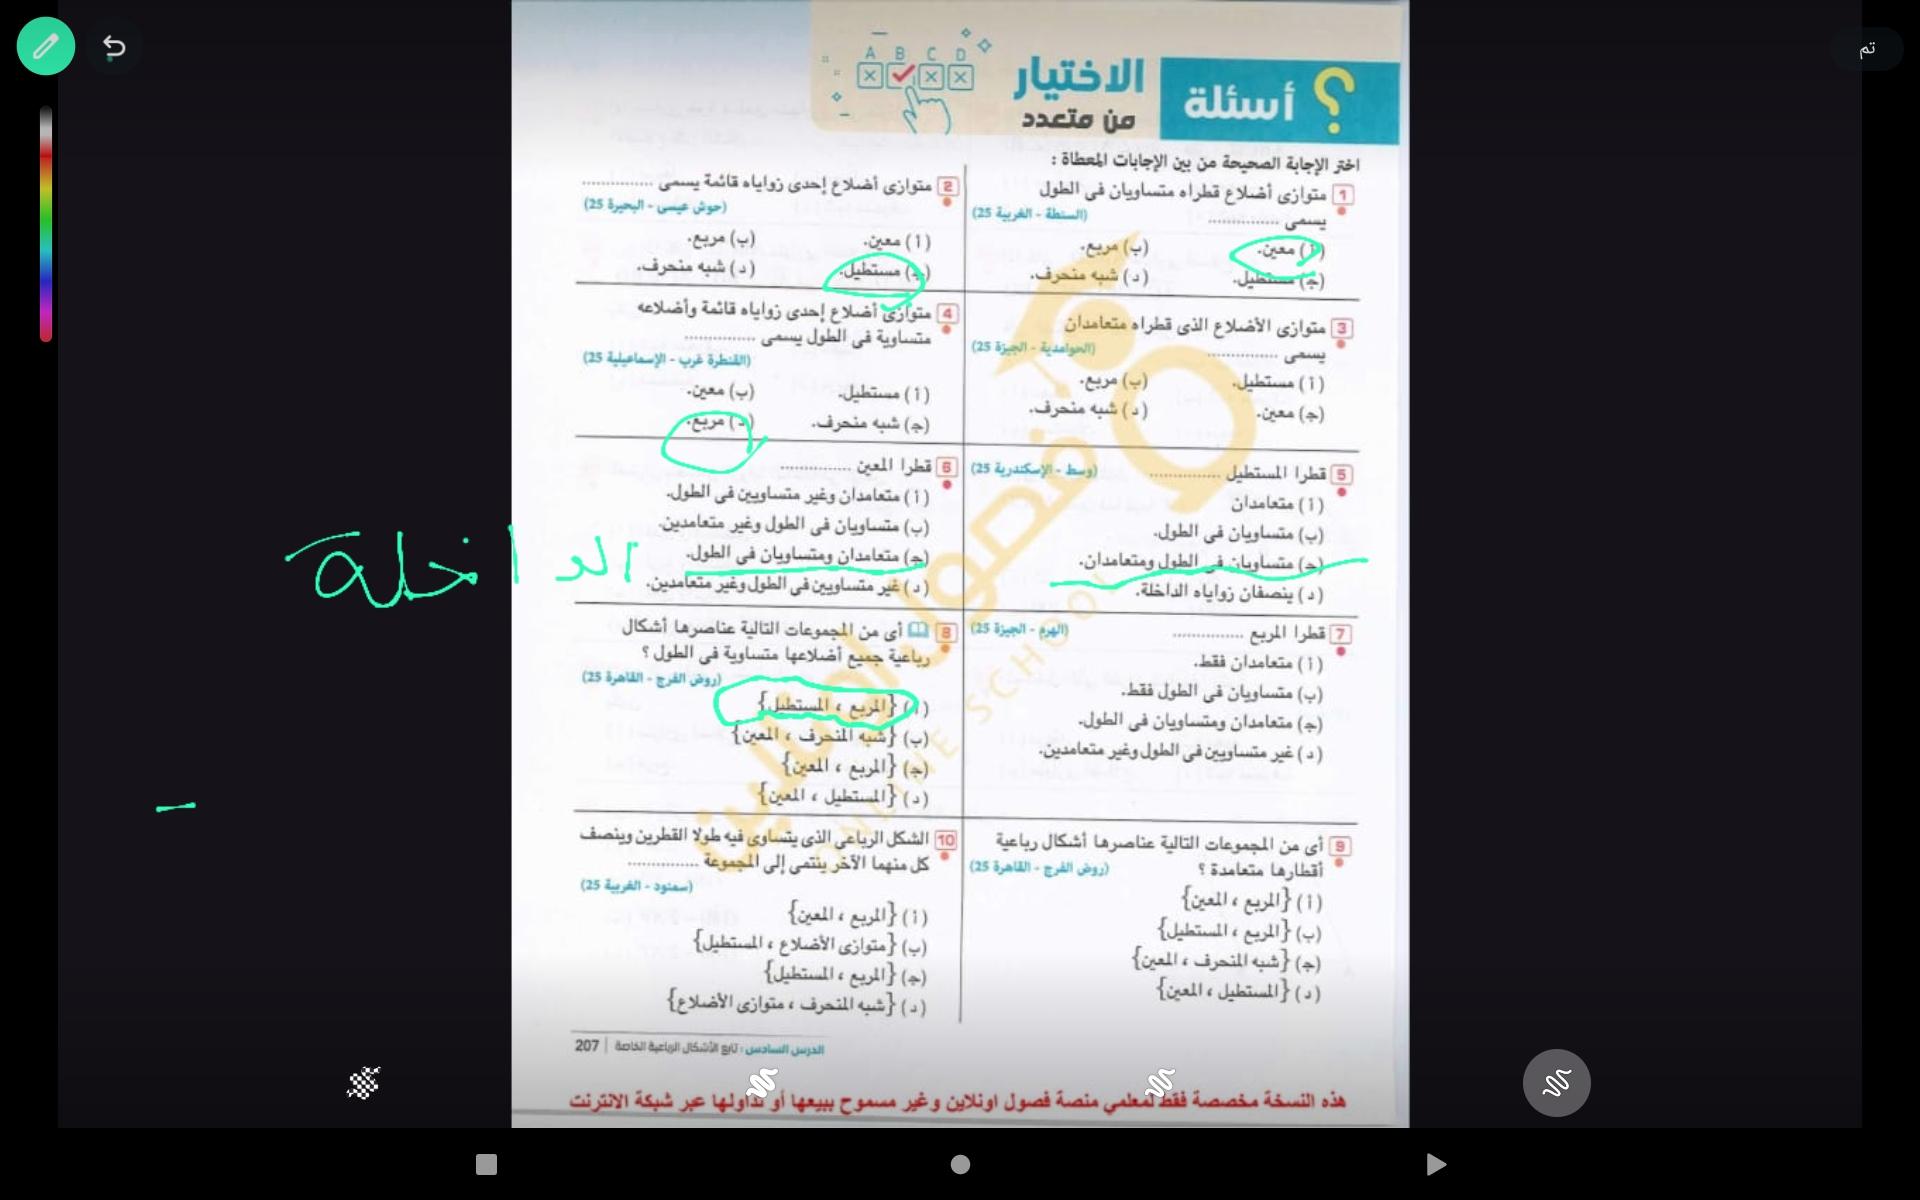 تم
A B C D
أسئلة
الاختيار
من متعدد
اختر الإجابة الصحيحة من بين الإجابات المعطاة :
1 متوازى أضلاع قطراه متساويان فى الطول
يسمى ..............
(السنطة - الغربية 25)
(أ) معين.
(ب) مربع.
(ج) مستطيل.
(د) شبه منحرف.
2 متوازى أضلاع إحدى زواياه قائمة يسمى ..............
(حوش عيسى - البحيرة 25)
(أ) معين.
(ب) مربع.
(ج) مستطيل.
(د) شبه منحرف.
3 متوازى الأضلاع الذى قطراه متعامدان
يسمى ..............
(الحوامدية - الجيزة 25)
(أ) مستطيل.
(ب) مربع.
(ج) معين.
(د) شبه منحرف.
4 متوازى أضلاع إحدى زواياه قائمة وأضلاعه
متساوية فى الطول يسمى ..............
(القنطرة غرب - الإسماعيلية 25)
(أ) مستطيل.
(ب) معين.
(ج) شبه منحرف.
(د) مربع.
5 قطرا المستطيل ..............
(وسط - الإسكندرية 25)
(أ) متعامدان
(ب) متساويان فى الطول.
(ج) متساويان فى الطول ومتعامدان.
(د) ينصفان زواياه الداخلة.
6 قطرا المعين ..............
(أ) متعامدان وغير متساويين فى الطول.
(ب) متساويان فى الطول وغير متعامدين.
(ج) متعامدان ومتساويان فى الطول.
(د) غير متساويين فى الطول وغير متعامدين.
الداخلة
7 قطرا المربع ..............
(الهرم - الجيزة 25)
(أ) متعامدان فقط.
(ب) متساويان فى الطول فقط.
(ج) متعامدان ومتساويان فى الطول.
(د) غير متساويين فى الطول وغير متعامدين.
8 أى من المجموعات التالية عناصرها أشكال
رباعية جميع أضلاعها متساوية فى الطول ؟
(روض الفرج - القاهرة 25)
(أ) {المربع ، المستطيل}
(ب) {شبه المنحرف ، المعين}
(ج) {المربع ، المعين}
(د) {المستطيل ، المعين}
9 أى من المجموعات التالية عناصرها أشكال رباعية
أقطارها متعامدة ؟
(روض الفرج - القاهرة 25)
(أ) {المربع ، المعين}
(ب) {المربع ، المستطيل}
(ج) {شبه المنحرف ، المعين}
(د) {المستطيل ، المعين}
10 الشكل الرباعى الذى يتساوى فيه طولا القطرين وينصف
كل منهما الآخر ينتمى إلى المجموعة ..............
(سمنود - الغربية 25)
(أ) {المربع ، المعين}
(ب) {متوازى الأضلاع ، المستطيل}
(ج) {المربع ، المستطيل}
(د) {شبه المنحرف ، متوازى الأضلاع}
فصول اونلاين
ONLINE SCHOOL
الدرس السادس : تابع الأشكال الرباعية الخاصة | 207
هذه النسخة مخصصة فقط لمعلمي منصة فصول اونلاين وغير مسموح ببيعها أو تداولها عبر شبكة الانترنت